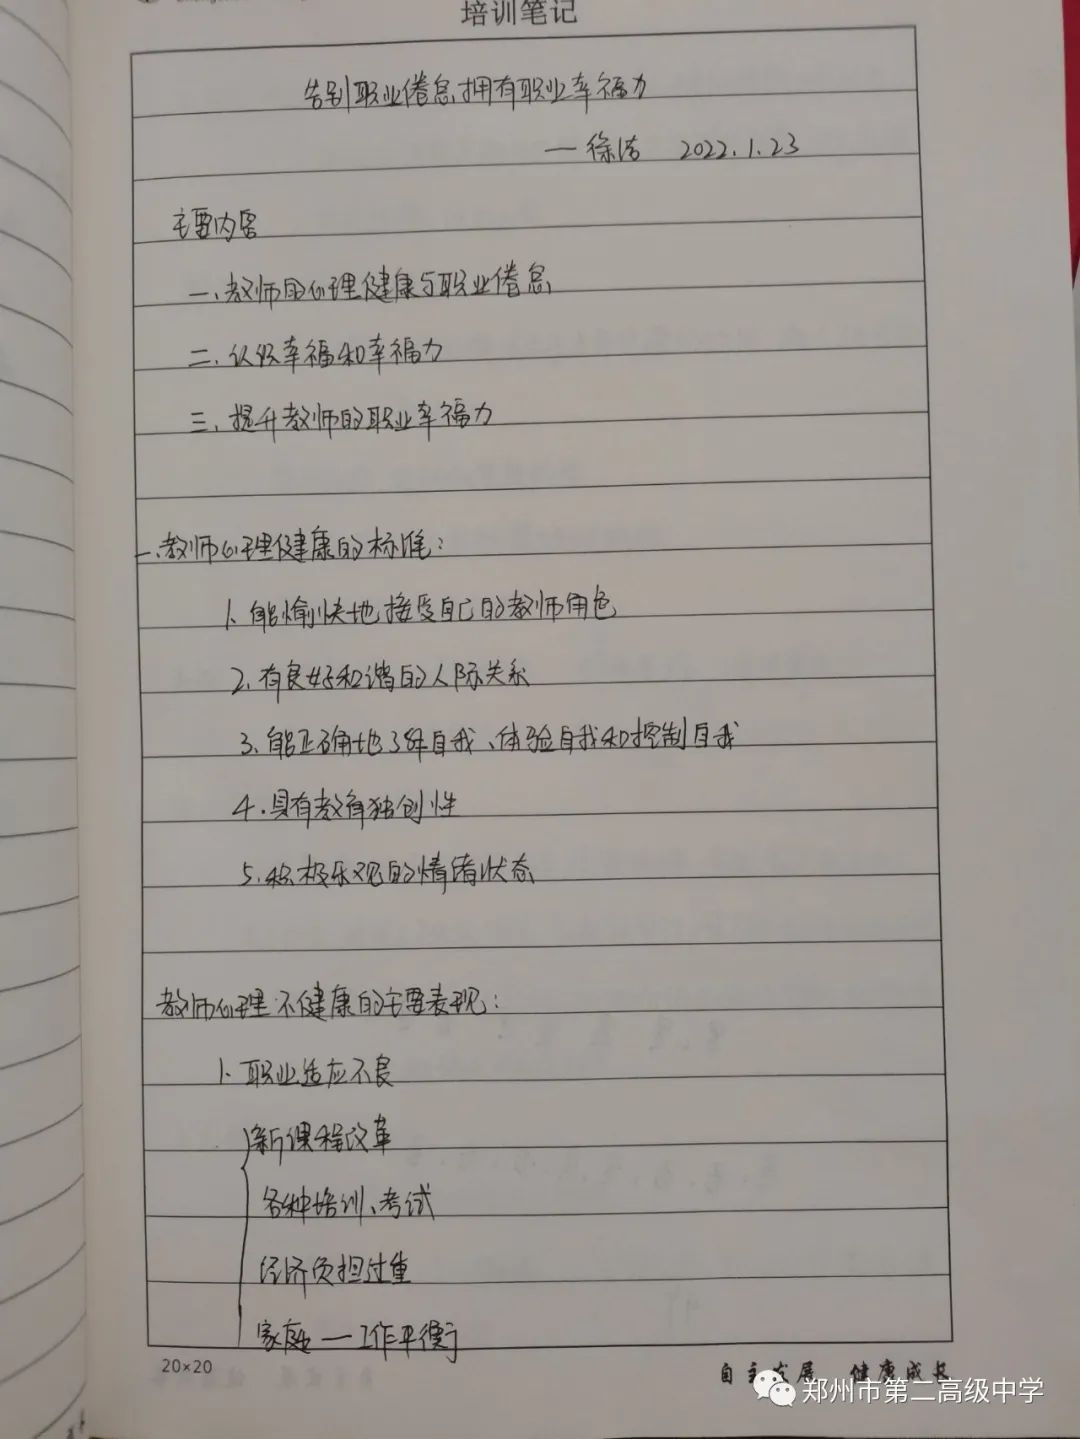 培训笔记
告别职业倦怠,拥有职业幸福力
— 徐洁 2022.1.23
主要内容
一、教师的心理健康与职业倦怠
二、认识幸福和幸福力
三、提升教师的职业幸福力
一、教师心理健康的标准:
1. 能愉快地接受自己的教师角色
2. 有良好和谐的人际关系
3. 能正确地了解自我、体验自我和控制自我
4. 具有教育独创性
5. 积极乐观的情绪状态
教师心理不健康的主要表现:
1. 职业适应不良
新课程改革
各种培训、考试
经济负担过重
家庭—工作平衡
20×20
自主发展 健康成长
郑州市第二高级中学